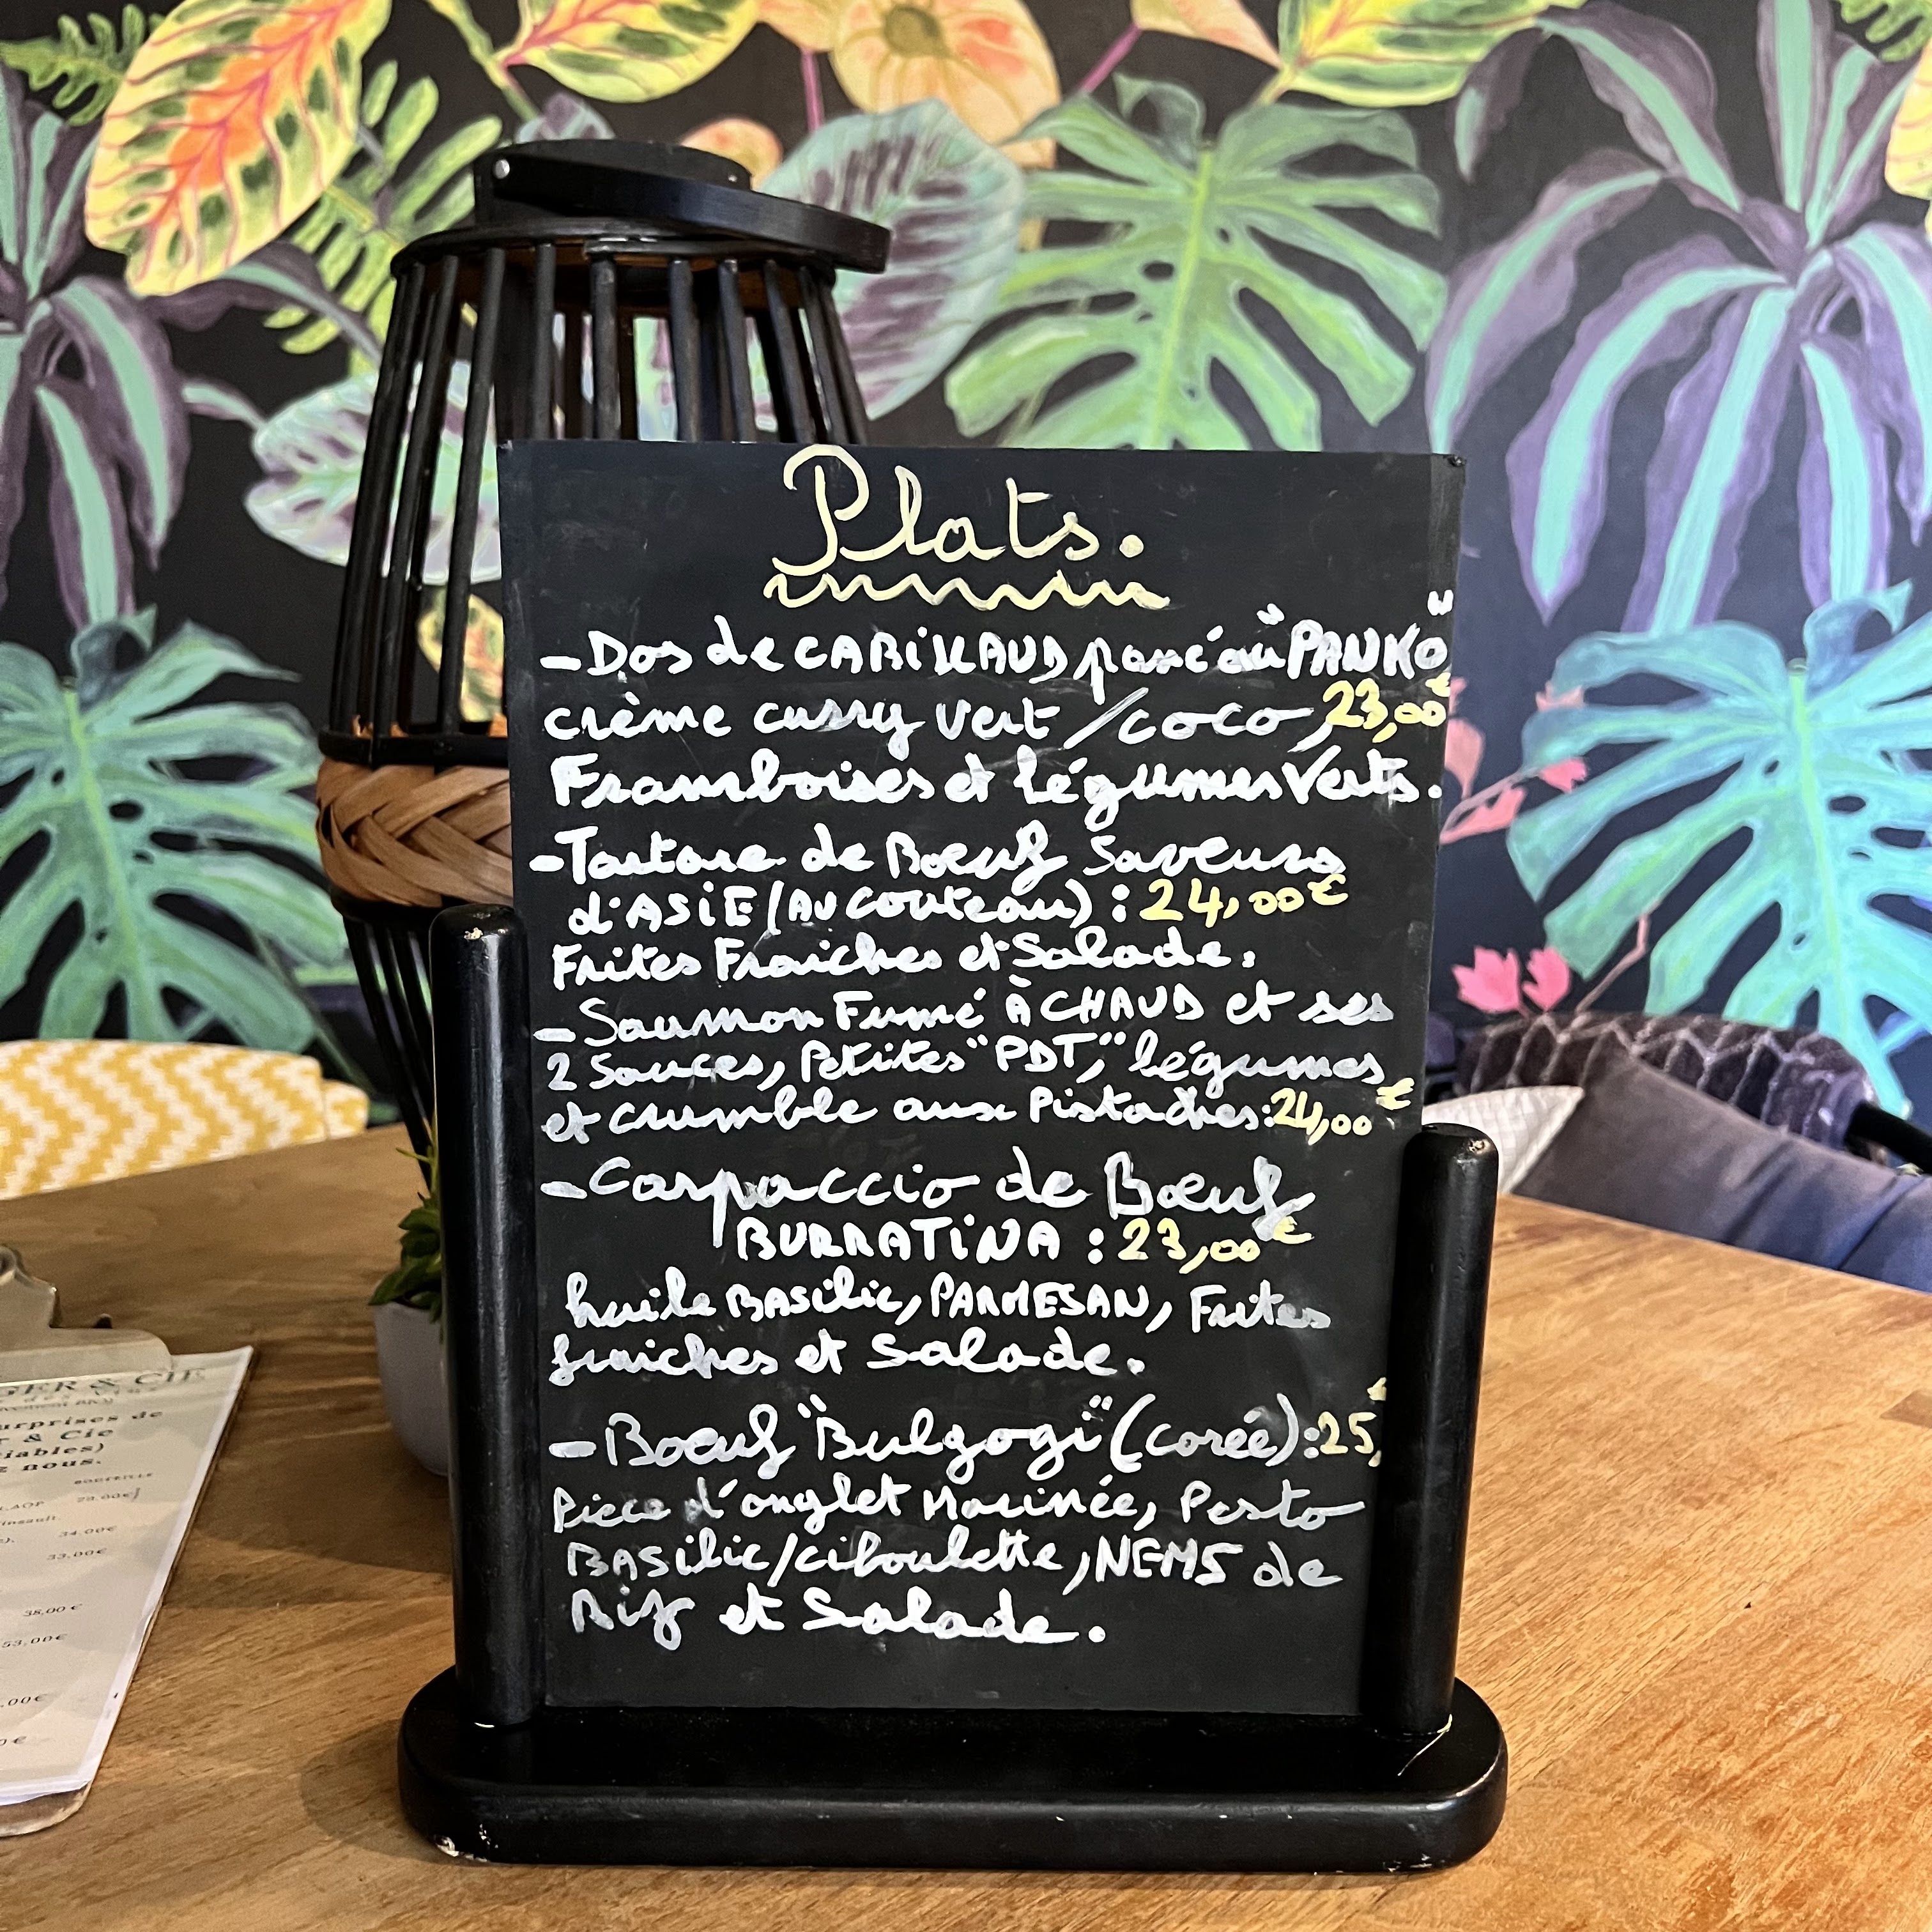 Plats.
- Dos de CABILLAUD pané au "PANKO"
crème curry vert / coco, 23,00€
Framboises et légumes Verts.
- Tartare de Bœuf Saveurs
d'ASIE (AU COUTEAU) : 24,00€
Frites Fraiches et Salade.
- Saumon Fumé À CHAUD et ses
2 Sauces, Petites "PDT," légumes
et crumble aux Pistaches: 24,00€
- Carpaccio de Bœuf
BURRATINA : 23,00€
huile BASilic, PARMESAN, Frites
fraiches et Salade.
- Bœuf "Bulgogi" (corée): 25,
Pièce d'onglet Marinée, Pesto
BASilic/ciboulette, NEMS de
Riz et Salade.
GER & CIE
urprises de
& Cie
iables)
nous.
BOUTEILLE
AOP 79.00€
insault.
34.00€
33.00€
38,00€
53,00€
.00€